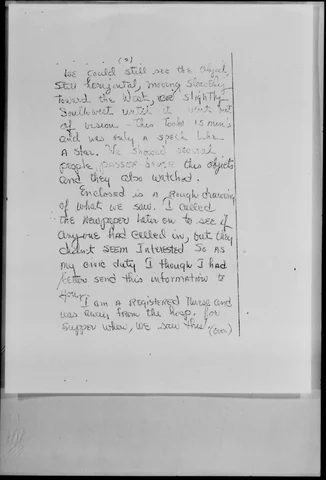 (2)
We could still see the object,
still horizontal, moving steadily
toward the West, or slightly
Southwest until it went out
of vision - this took 15 min's
and was only a speck like
A star. We showed several
people, passer bys this objects
and they also watched.
Enclosed is a rough drawing
of what we saw. I called
the Newspaper later on to see if
anyone had called in, but they
didn't seem interested so as
my civic duty I though I had
better send this information to
your
I am a Registered Nurse and
was away from the hosp. for
supper when, we saw this. (over)